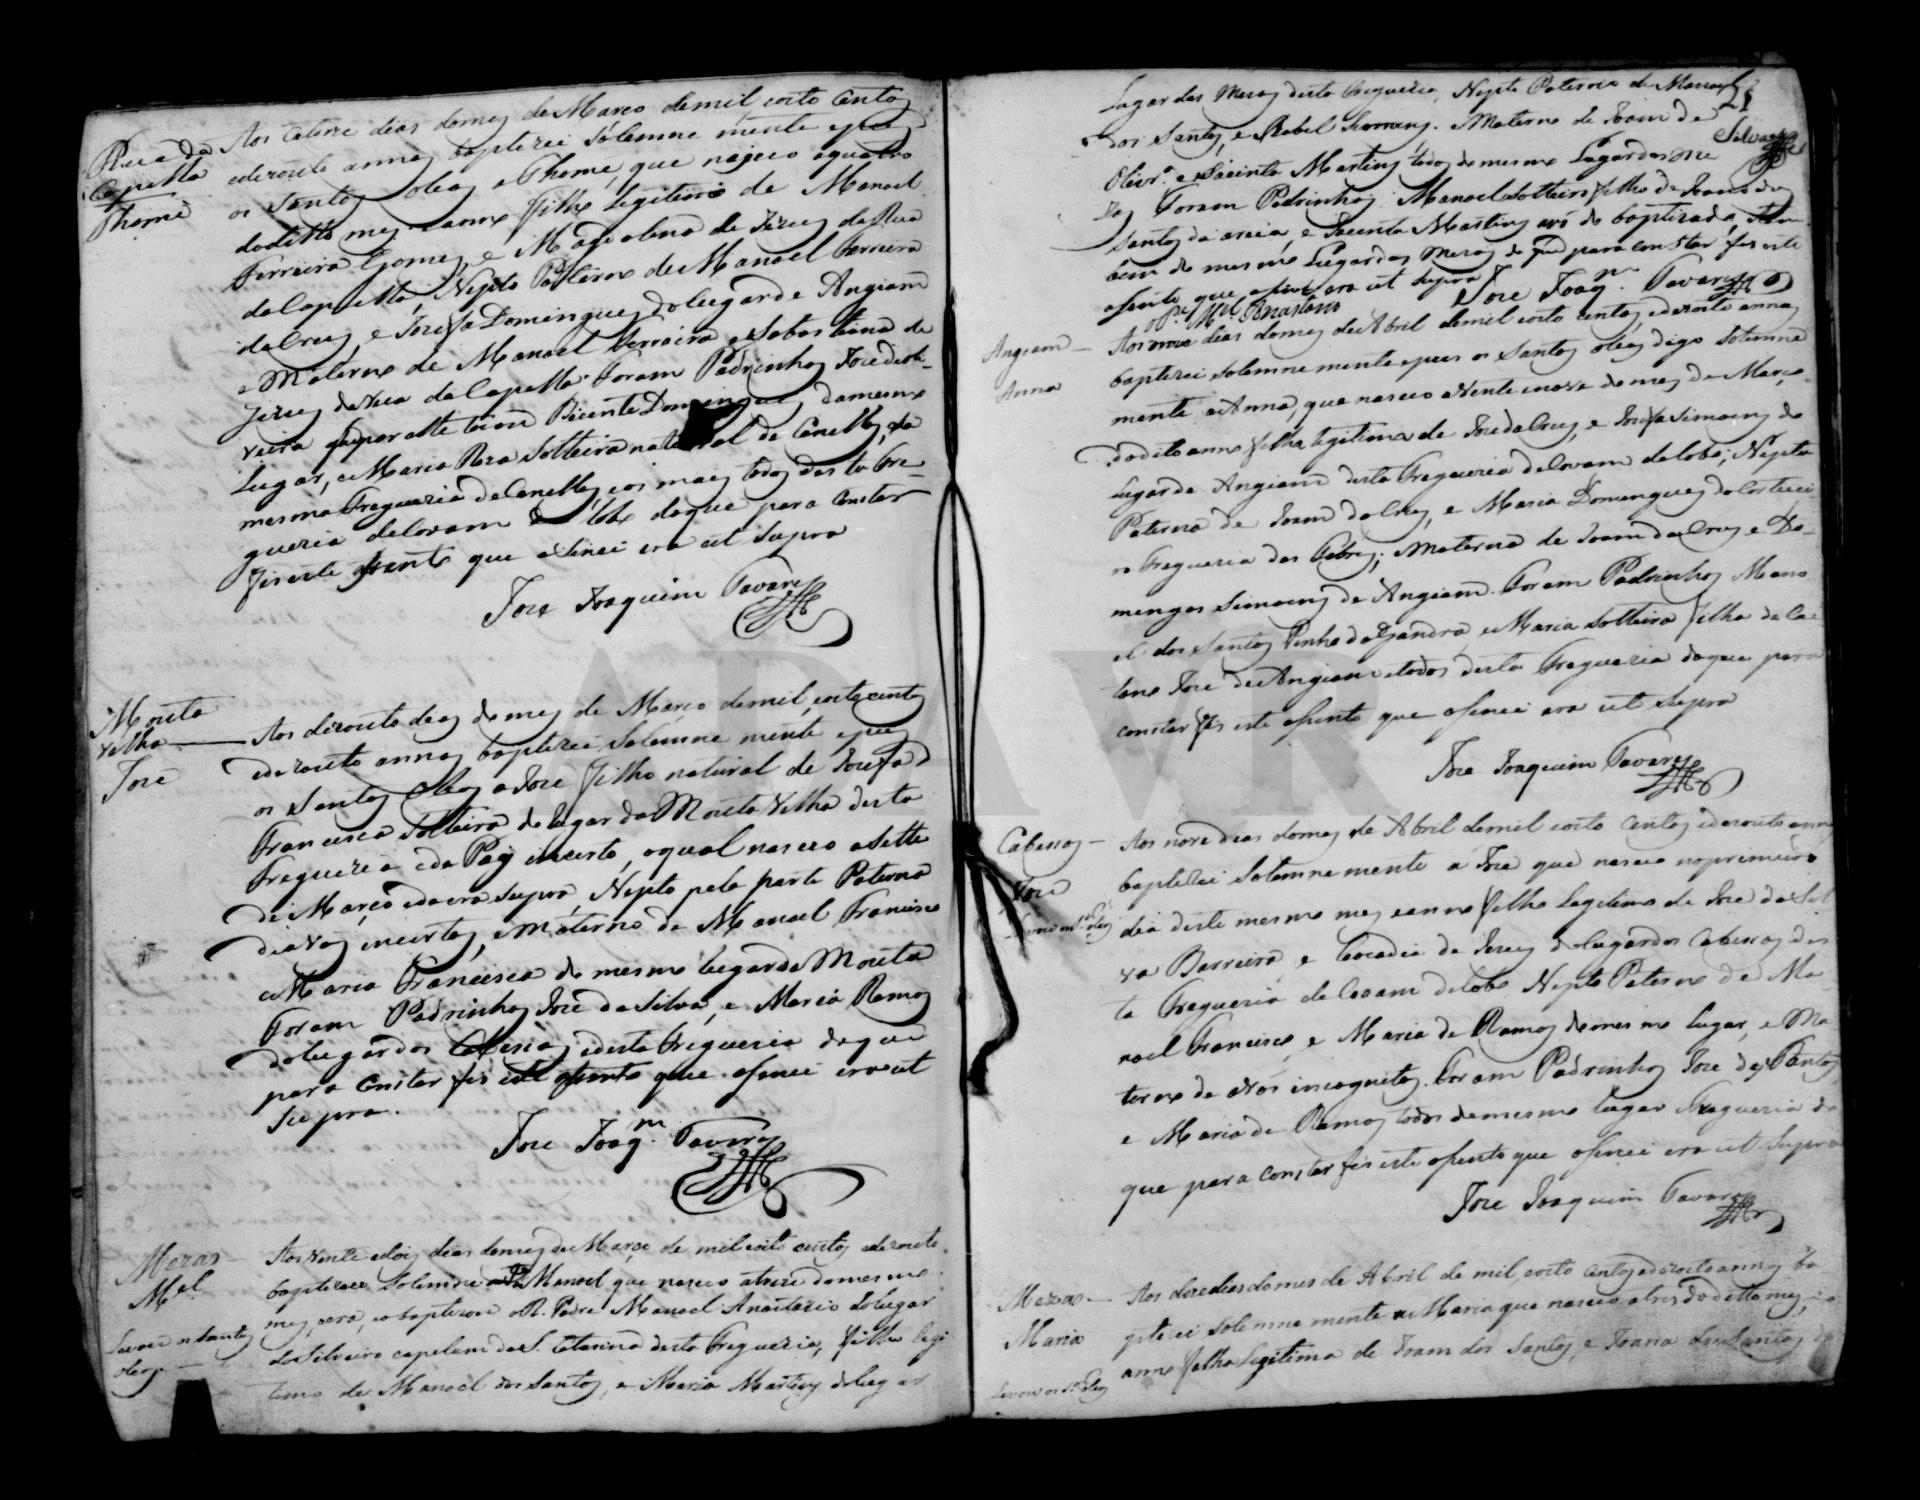 Rua da
Capella
Thome
Aos catorze dias do mez de Março de mil oito centos
e dezouto annos baptizei solemne mente e puz
os Santos oleos a Thome, que nasceo a quatro
do ditto mez e anno filho legitimo de Manoel
Ferreira Gomes, e Magdalena de Jezus da Rua
da Capella, Nepto Paterno de Manoel Ferreira
da Cruz, e Josefa Domingues do lugar de Angiam
e Materno de Manoel Ferreira e Sabastiana de
Jezus da Rua da Capella. Foram Padrinhos Joze
veira Vicente Domingues da mesmo
Lugar, e Maria Roza Solteira natural de Canellas, da
mesma Freguezia de Canellas, e os mais todos desta Fre-
guezia de Covam do Lobo do que para constar
fis este asento que asinei era ut supra
Joze Joaquim Tavares
Mouta
velha
Joze
Aos dezouto dias do mez de Março de mil, oito centos
e dezouto annos baptizei solemne mente e puz
os Santos Oleos a Joze filho natural de Josefa
Francisca Solteira do lugar da Mouta Velha desta
Freguezia e de Pay incerto, o qual nasceo a sette
de Março e da era supra, Nepto pela parte Paterna
de avos incertos, e Materno de Manoel Francisco
e Maria Francisca do mesmo lugar da Mouta
Foram Padrinhos Joze da Silva, e Maria Ramos
do lugar dos e desta Freguezia do que
para constar fis este asento que asinei era ut
supra.
Joze Joaqm. Tavares
Mezas
Mel
Levou os Santos
oleos
Aos vente e dois dias do mez de Março de mil oito centos e dezouto
baptizei solemne a Manoel que nasceo a treze do mesmo
mez, e era, e o baptizou o R. Padre Manoel Anastacio do lugar
do Silveiro capelam da S. Catarina desta Freguezia, filho legi
timo de Manoel dos Santos, e Maria Martins do lugar
21
Lugar das Mezas desta Freguezia, Nepto Paterno de Manoel
dos Santos, e Izabel e Materno de Joam de
Olivr.a e Jacinta Martins todos do mesmo Lugar das Me
zas Foram Padrinhos Manoel Solteiro filho de Joam dos
Santos da areia, e Jacinta Martins avó do baptizado, tam
bem do mesmo Lugar das Mezas do que para constar fis este
asento que asinei era ut supra Joze Joaqm. Tavares
o Pe. Mel Anastacio
Angiam
Anna
Aos nove dias do mez de Abril de mil oito centos, e dezouto annos
baptizei solemne mente e puz os Santos oleos digo solemne
mente a Anna, que nasceo a vente e nove do mez de Março
do dito anno filha legitima de Joze da Cruz, e Josefa Simoens do
Lugar de Angiam desta Freguezia de Covam do Lobo, Nepta
Paterna de Joam da Cruz, e Maria Domingues do
a Freguezia das Febres; Materna de Joam da Cruz e Do-
mengas Simoens de Angiam. Foram Padrinhos Mano
el dos Santos Pinho da Gandra, e Maria Solteira filha de Ca
tano Joze de Angiam e todos desta Freguezia do que para
constar fis este asento que asinei era ut supra
Joze Joaquim Tavares
Cabesos
Joze
Aos nove dias do mez de Abril de mil oito centos e dezouto annos
baptizei solemne mente a Joze que nasceo no primeiro
dia deste mesmo mez e anno filho legitimo de Joze da Sil
va Barreira, e Leocadia de Jezus do lugar dos Cabesos des
ta Freguezia de Covam do Lobo Nepto Paterno de Ma
noel Francisco, e Maria de Ramos do mesmo lugar, e Ma
terno de avos incognitos. Foram Padrinhos Joze dos Santos
e Maria de Ramos todos do mesmo lugar e Freguezia do
que para constar fis este asento que asinei era ut supra
Joze Joaquim Tavares
Mezas
Maria
Levou os S.tos oleos
Aos doze dias do mes de Abril de mil oito centos e dezouto annos ba
ptizei solemne mente a Maria que nasceo a tres do ditto mez, e
anno filha legitima de Joam dos Santos, e Joana dos Santos do
ADAVR